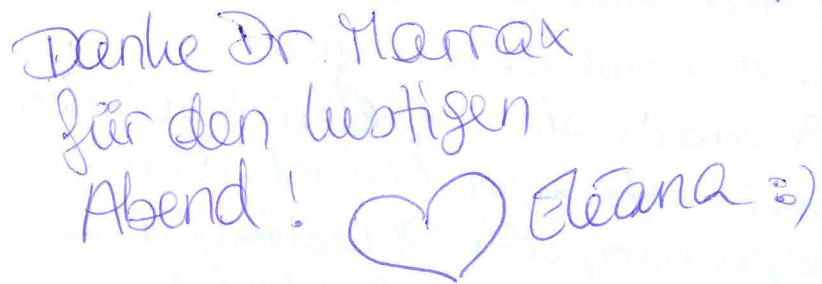 Danke Dr. Marrax
für den lustigen
Abend! ♡ Eleana :)